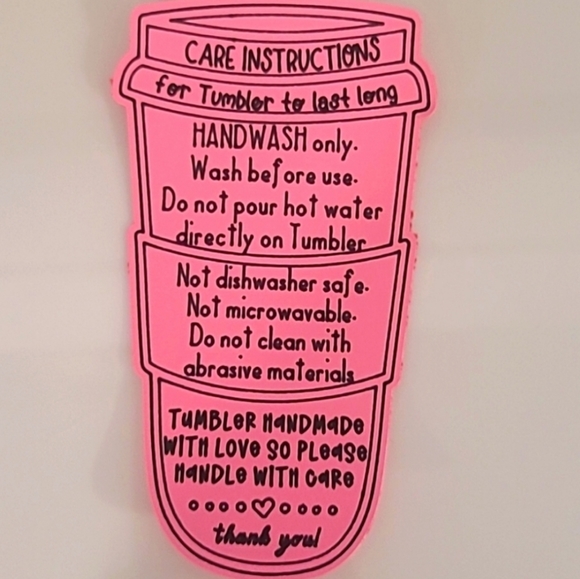 CARE INSTRUCTIONS
for Tumbler to last long
HANDWASH only.
Wash before use.
Do not pour hot water
directly on Tumbler
Not dishwasher safe.
Not microwavable.
Do not clean with
abrasive materials
TUMBLER HANDMADE
WITH LOVE SO PLEASE
HANDLE WITH CARE
thank you!